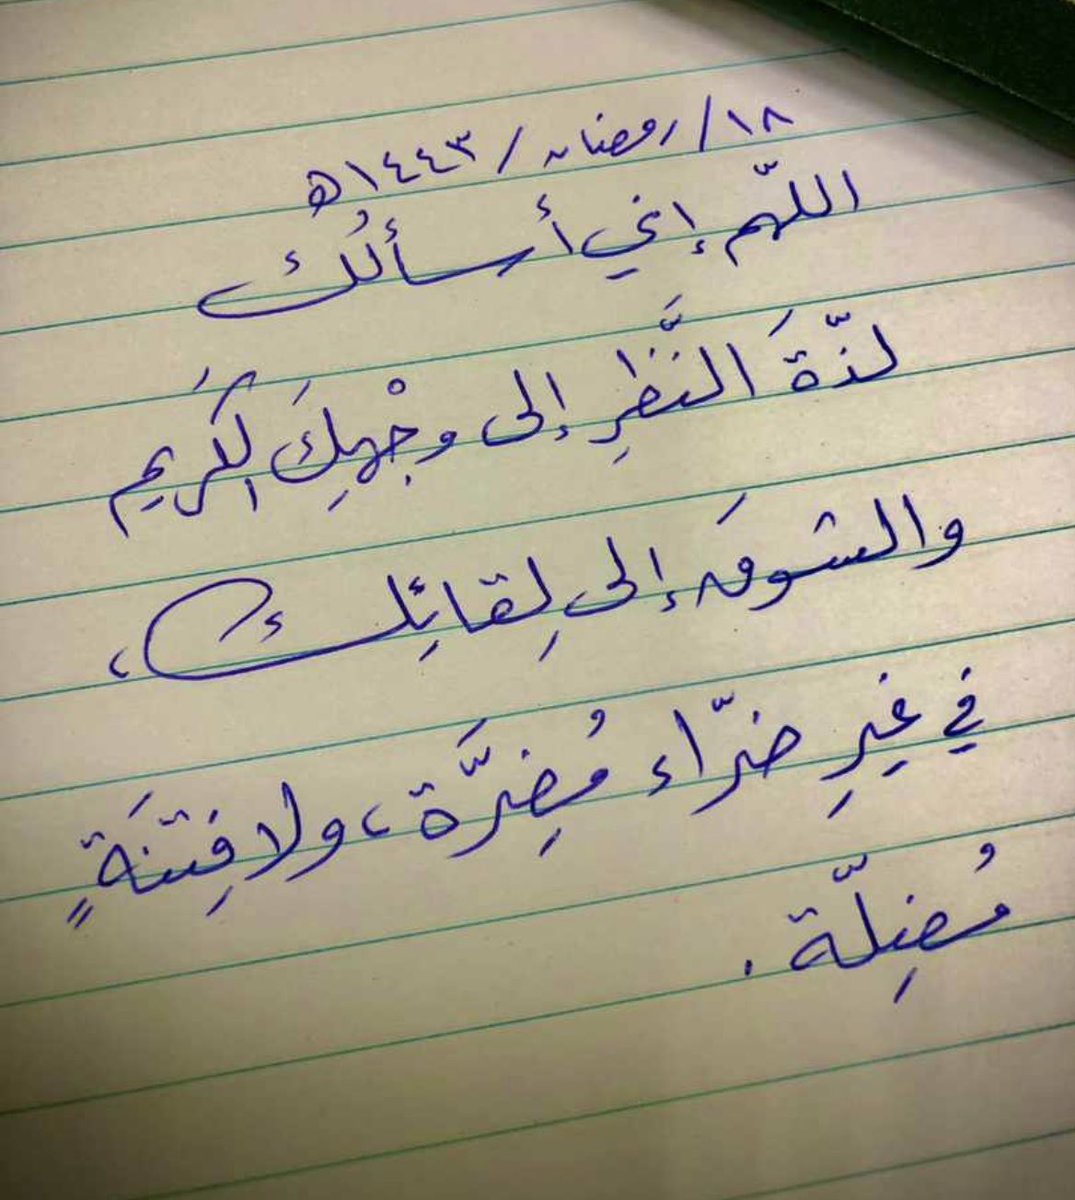 ١٨/ رمضان / ١٤٤٣هـ
اللّهم إني أسألُك
لذّةَ النَّظرِ إلى وجْهِكَ الكَريم
والشوقَ إلى لِقائِك ،
في غيرِ ضرّاء مُضِرَّة ، ولا فِتنَةٍ
مُضِلّة .